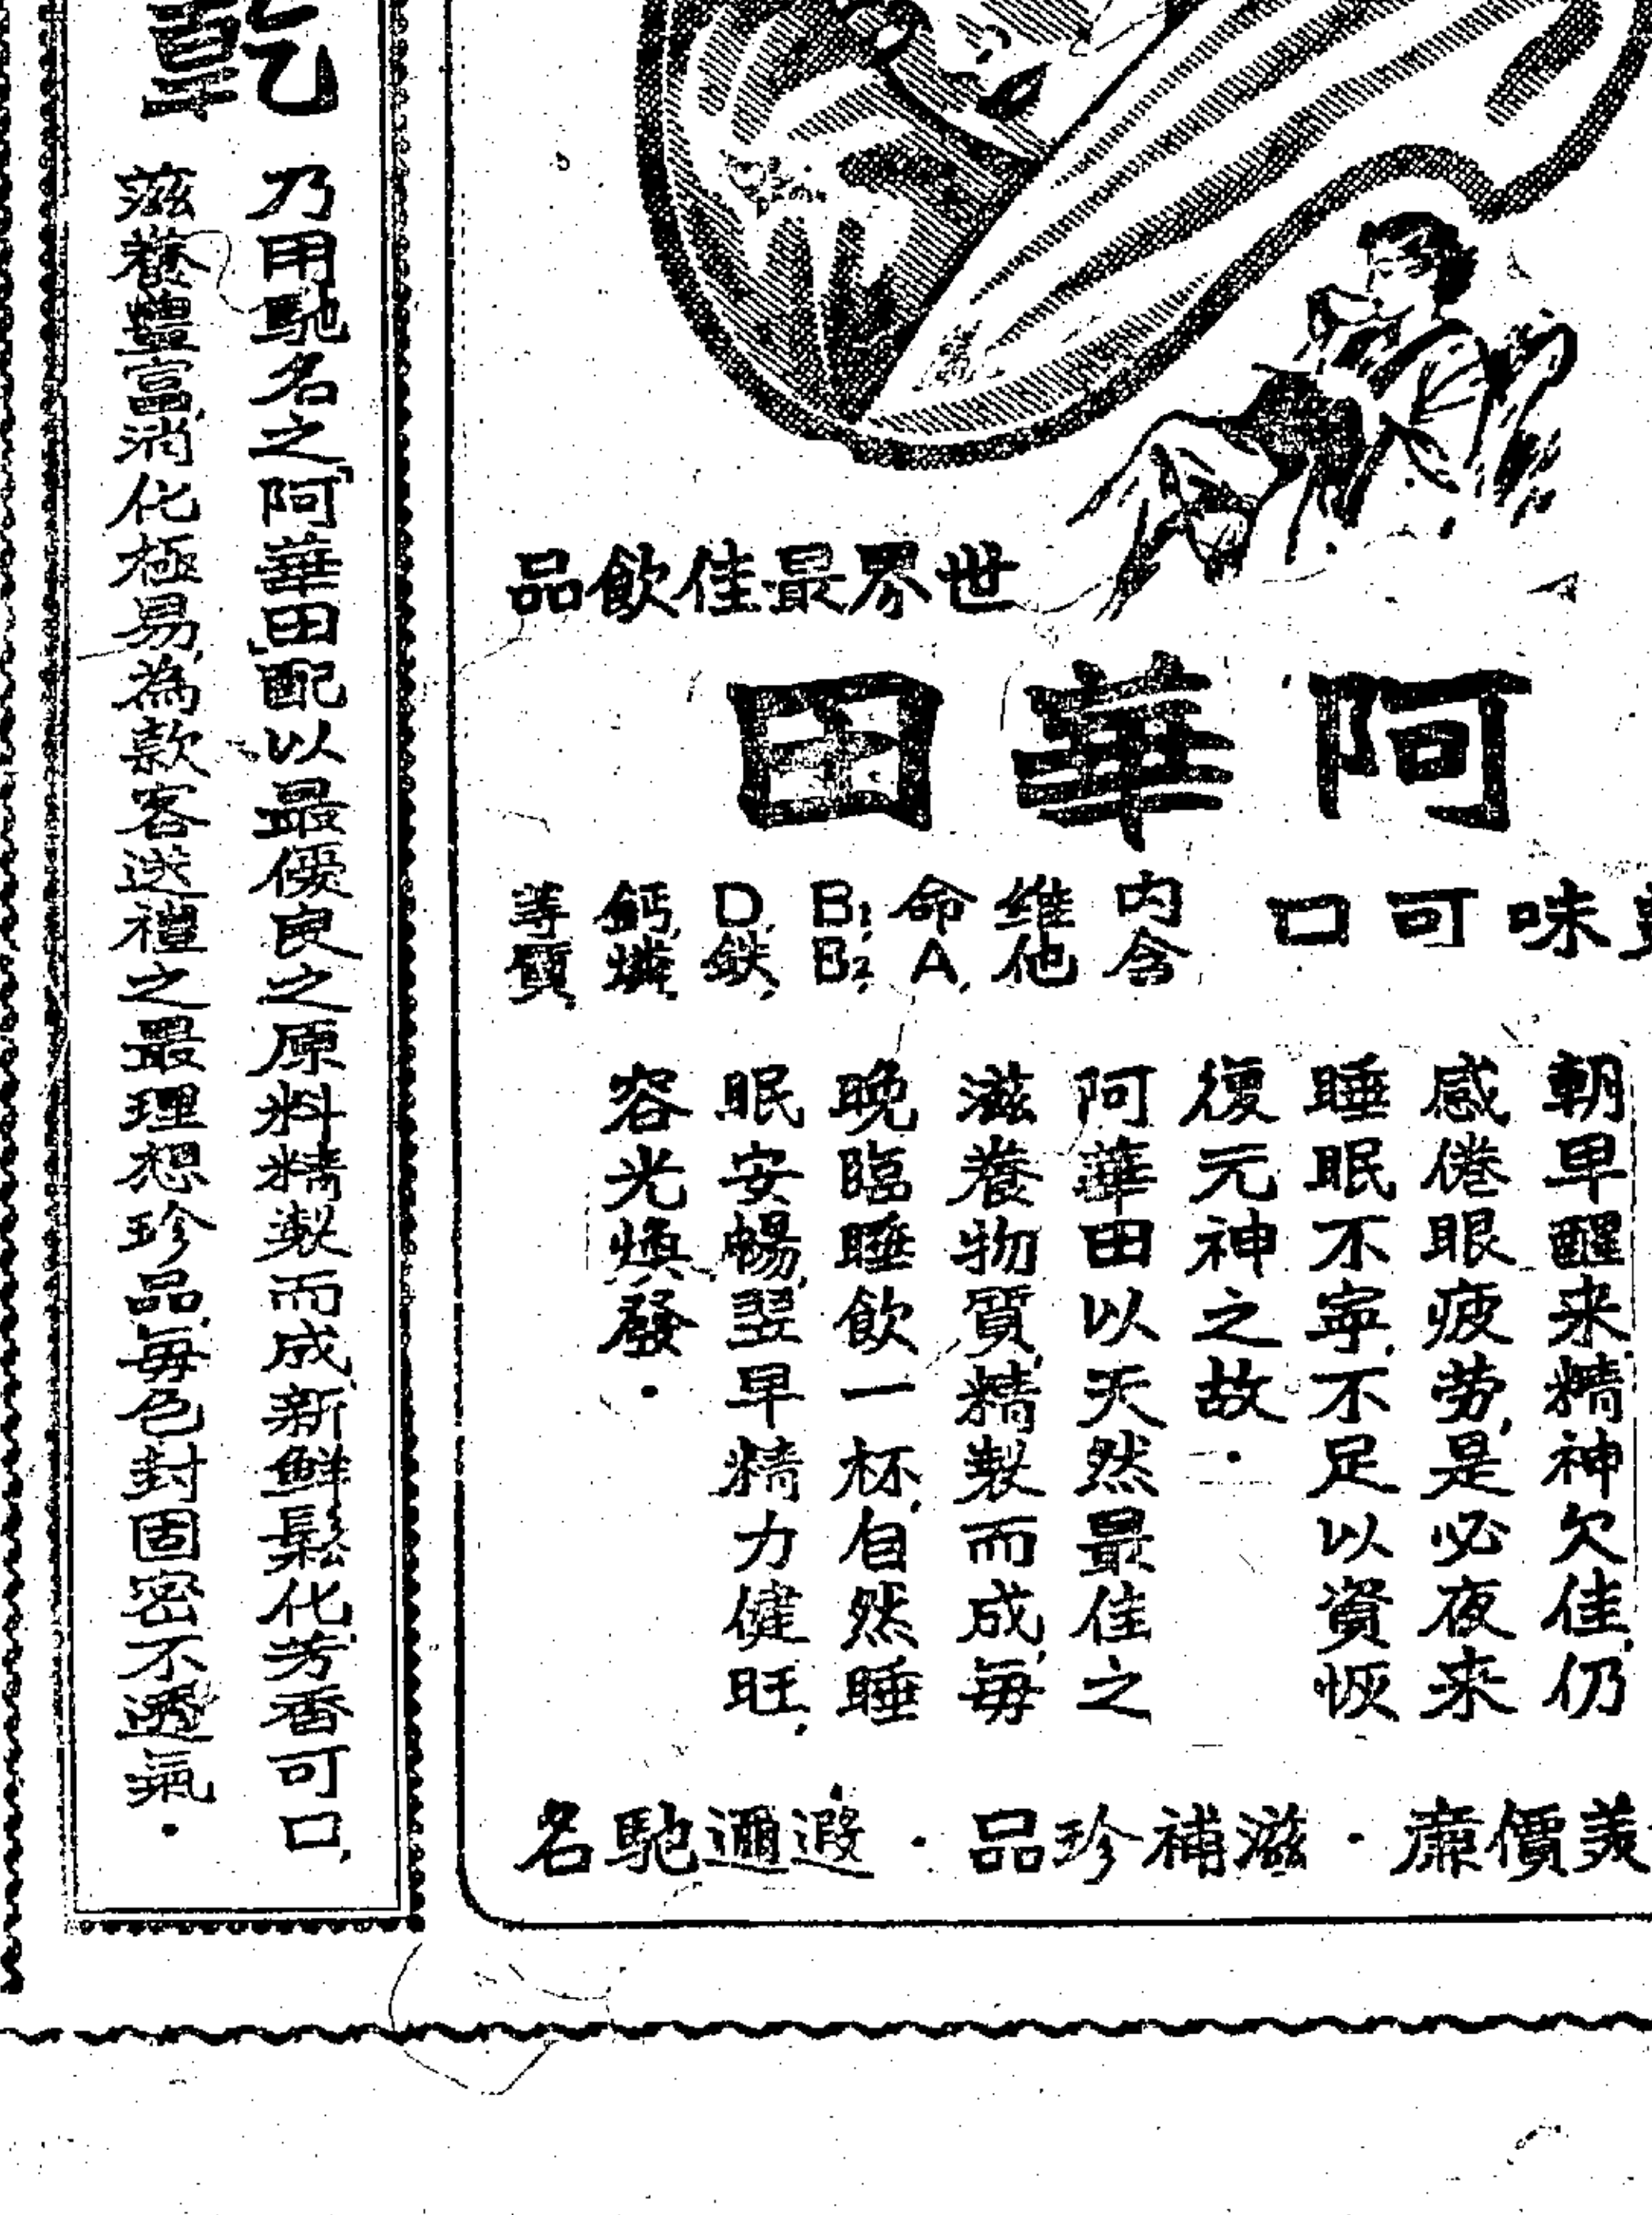 世界最佳飲品
阿華田
味可口
內含
維他
命A,
B₁,B₂,
D,鉄,
鈣,燐,
等質.
朝早醒来,精神欠佳,仍
感倦眼疲劳,是必夜来
睡眠不寧,不足以資恢
復元神之故.
阿華田以天然最佳之
滋養物質,精製而成,每
晚臨睡飲一杯,自然睡
眠安暢,翌早精力健旺,
容光煥發.
美價廉.滋補珍品.遐邇馳名
乾
乃用馳名之「阿華田」配以最優良之原料精製而成,新鮮鬆化,芳香可口,
滋養豐富,消化極易,為款客送禮之最理想珍品,每包封固密不透氣.